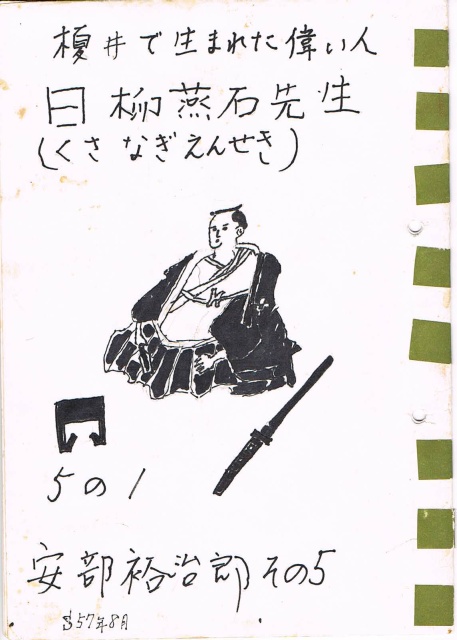 榎井で生まれた偉い人
日柳燕石先生
(くさなぎえんせき)
5の1
安部裕治郎その5
S57年8月